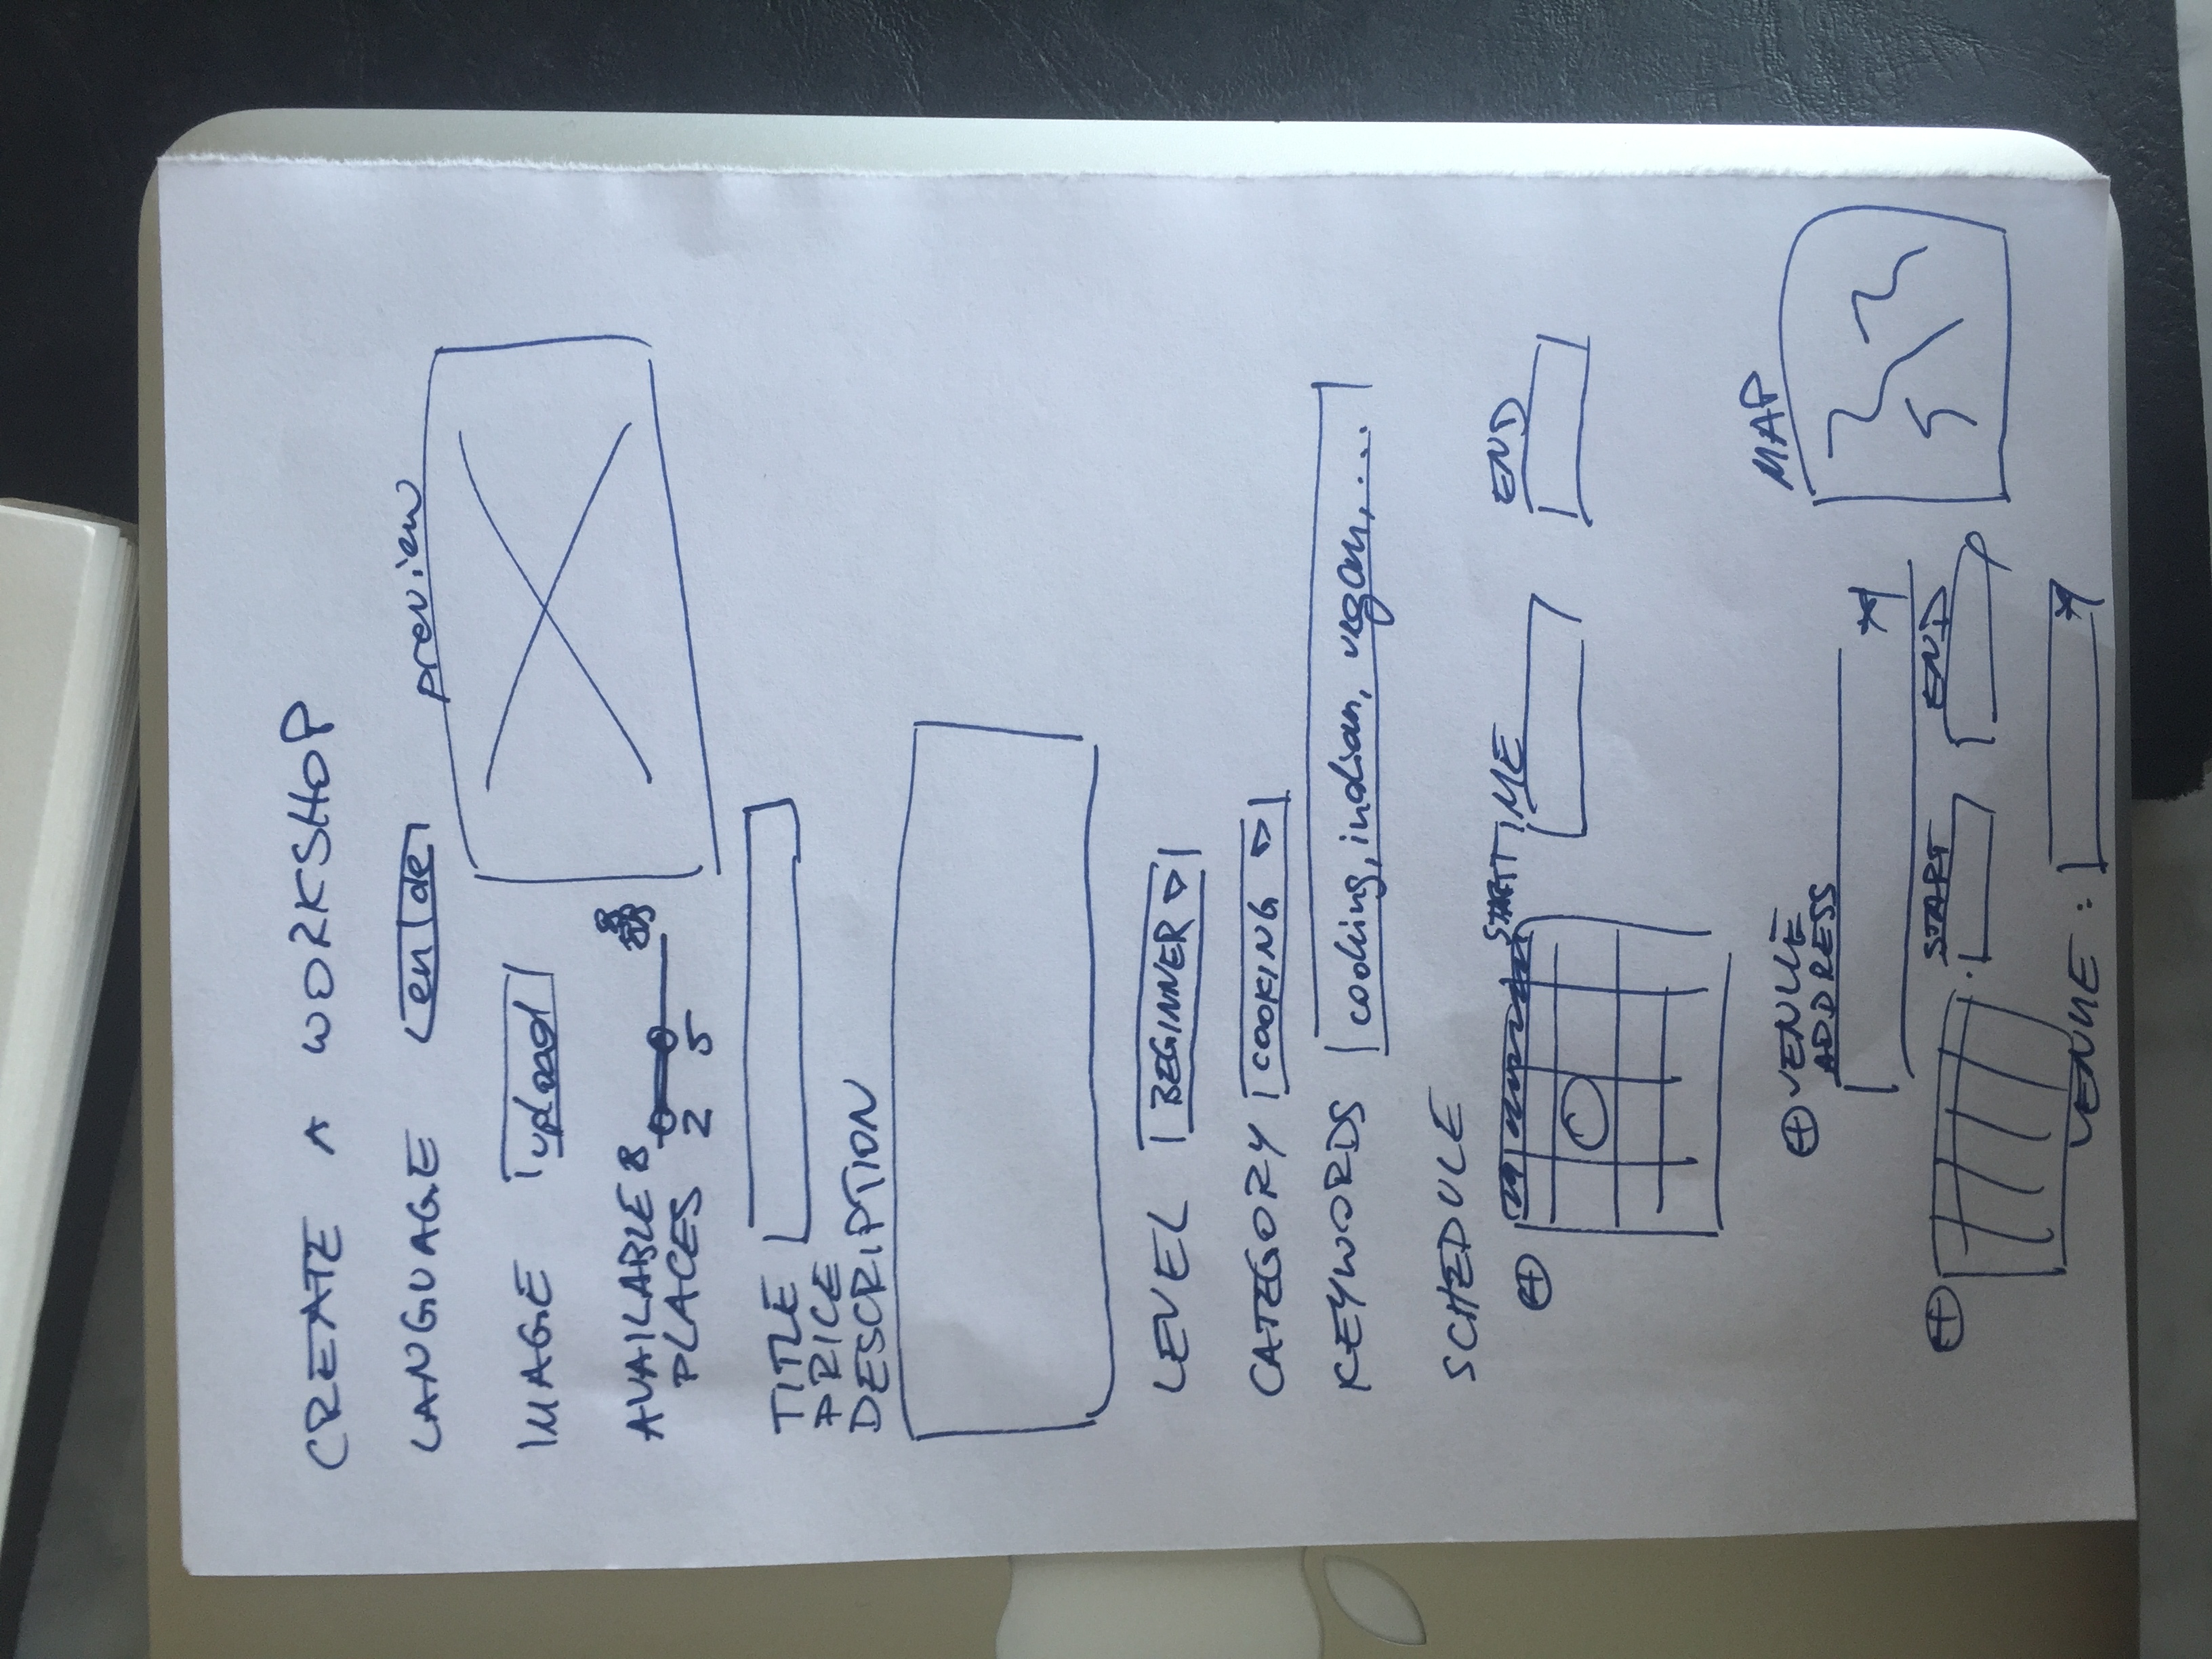 CREATE A WORKSHOP
LANGUAGE en | de
preview
IMAGE upload
AVAILABLE
PLACES 2 5
TITLE
PRICE
DESCRIPTION
LEVEL BEGINNER
CATEGORY COOKING
KEYWORDS cooking, indian, vegan, ...
SCHEDULE
START TIME END
VENUE
ADDRESS
MAP
START END
VENUE :